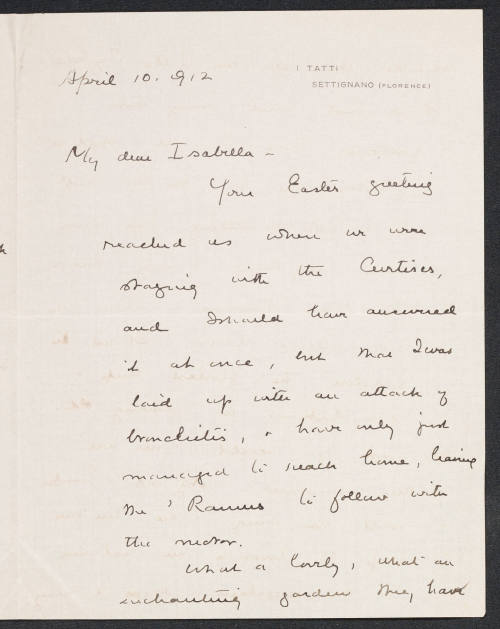 I TATTI
SETTIGNANO (FLORENCE)
April 10. 1912
My dear Isabella -
Your Easter greeting
reached us when we were
staying with the Curtises,
and I should have answered
it at once, but that I was
laid up with an attack of
bronchitis, & have only just
managed to reach home, leaving
the 'Ranees to follow with
the motor.
What a lovely, what an
enchanting garden they have